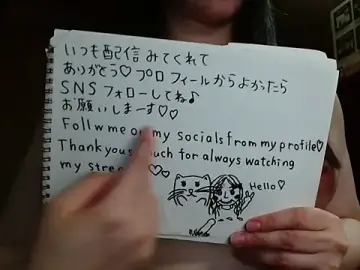 いつも配信みてくれて
ありがとう♡プロフィールからよかったら
SNSフォローしてね♪
お願いしまーす♡♡
Follw me my socials from my profile♡
Thank you much for always watching
my
Hello♡